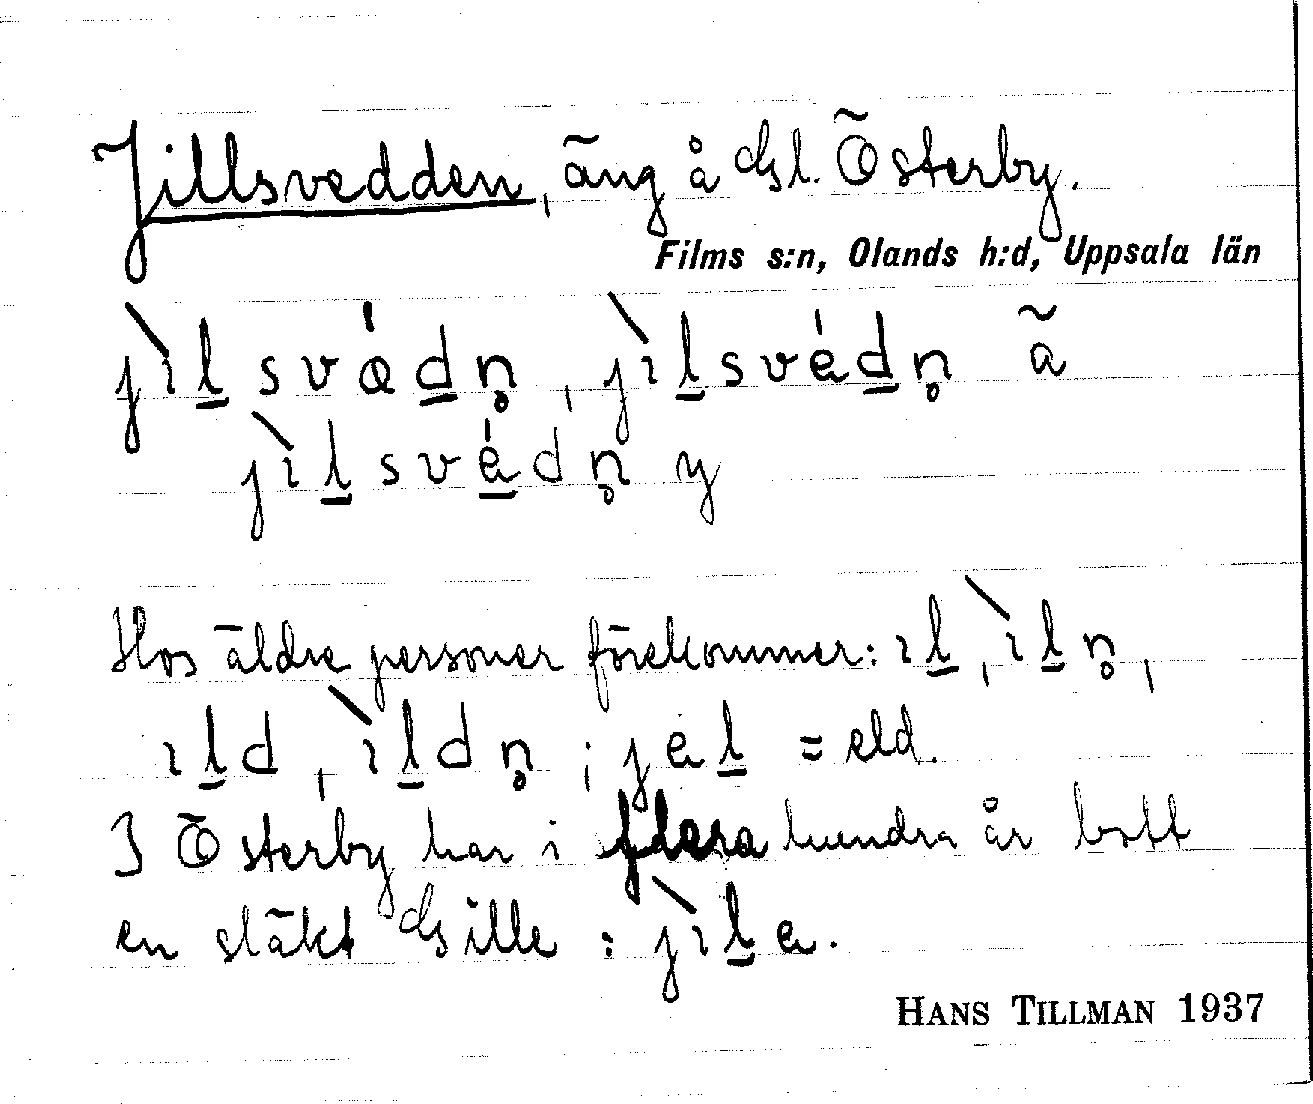 Jillsvedden, äng å Gl. Österby.
Films s:n, Olands h:d, Uppsala län
jìl̲svéd̲n̥, jìl̲svéd̲n̥ ä
jìl̲své̲dn̥ y
Hos äldre personer förekommer: ıl̲, ìl̲n̥,
ıl̲d, ìl̲dn̥; jel̲ = eld.
I Österby har i flera hundra år bott
en släkt Gille: jìl̲e.
HANS TILLMAN 1937